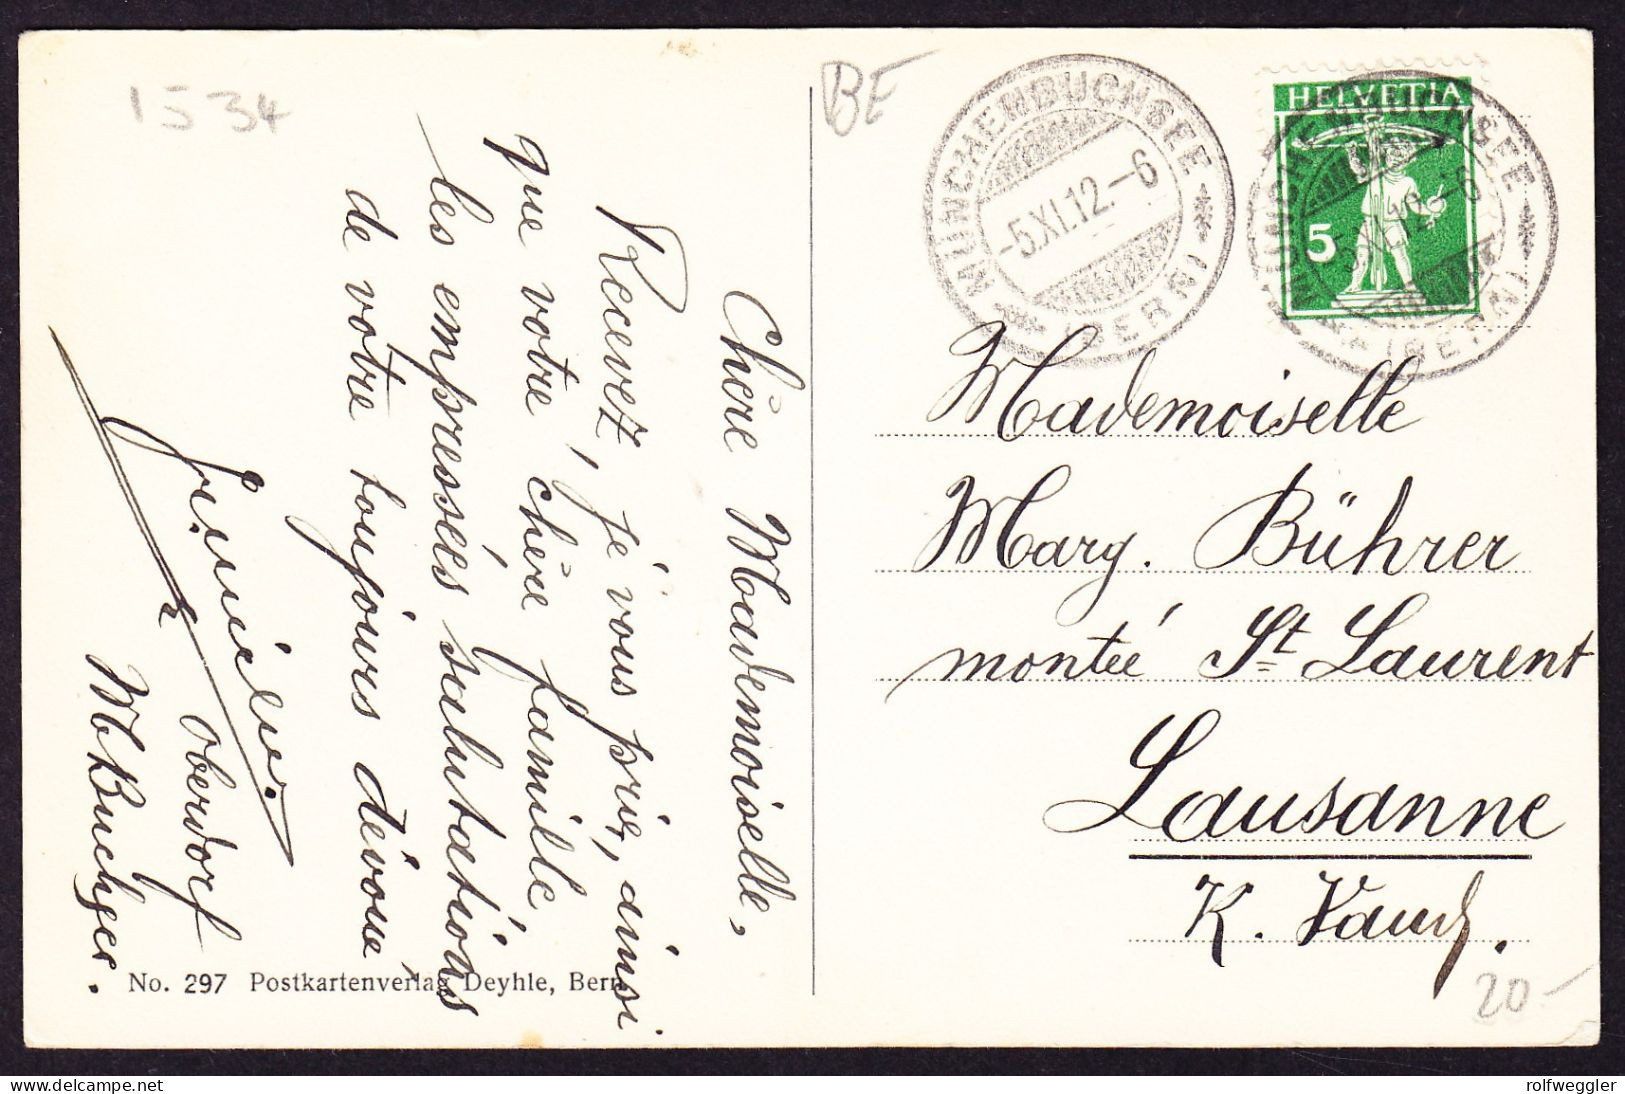 1534
BE
MÜNCHENBUCHSEE
-5.XI.12.-6
(BERN)
HELVETIA
5
MÜNCHENBUCHSEE
(BERN)
Mademoiselle
Marg. Bührer
montée St Laurent
Lausanne
K. Vaud.
20-
Chère Mademoiselle,
Recevez, je vous prie, ainsi
que votre chère famille,
les empressées salutations
de votre toujours dévouée
Oberdorf
M. Buchser.
No. 297 Postkartenverlag Deyhle, Bern.
delcampe.net
rolfweggler